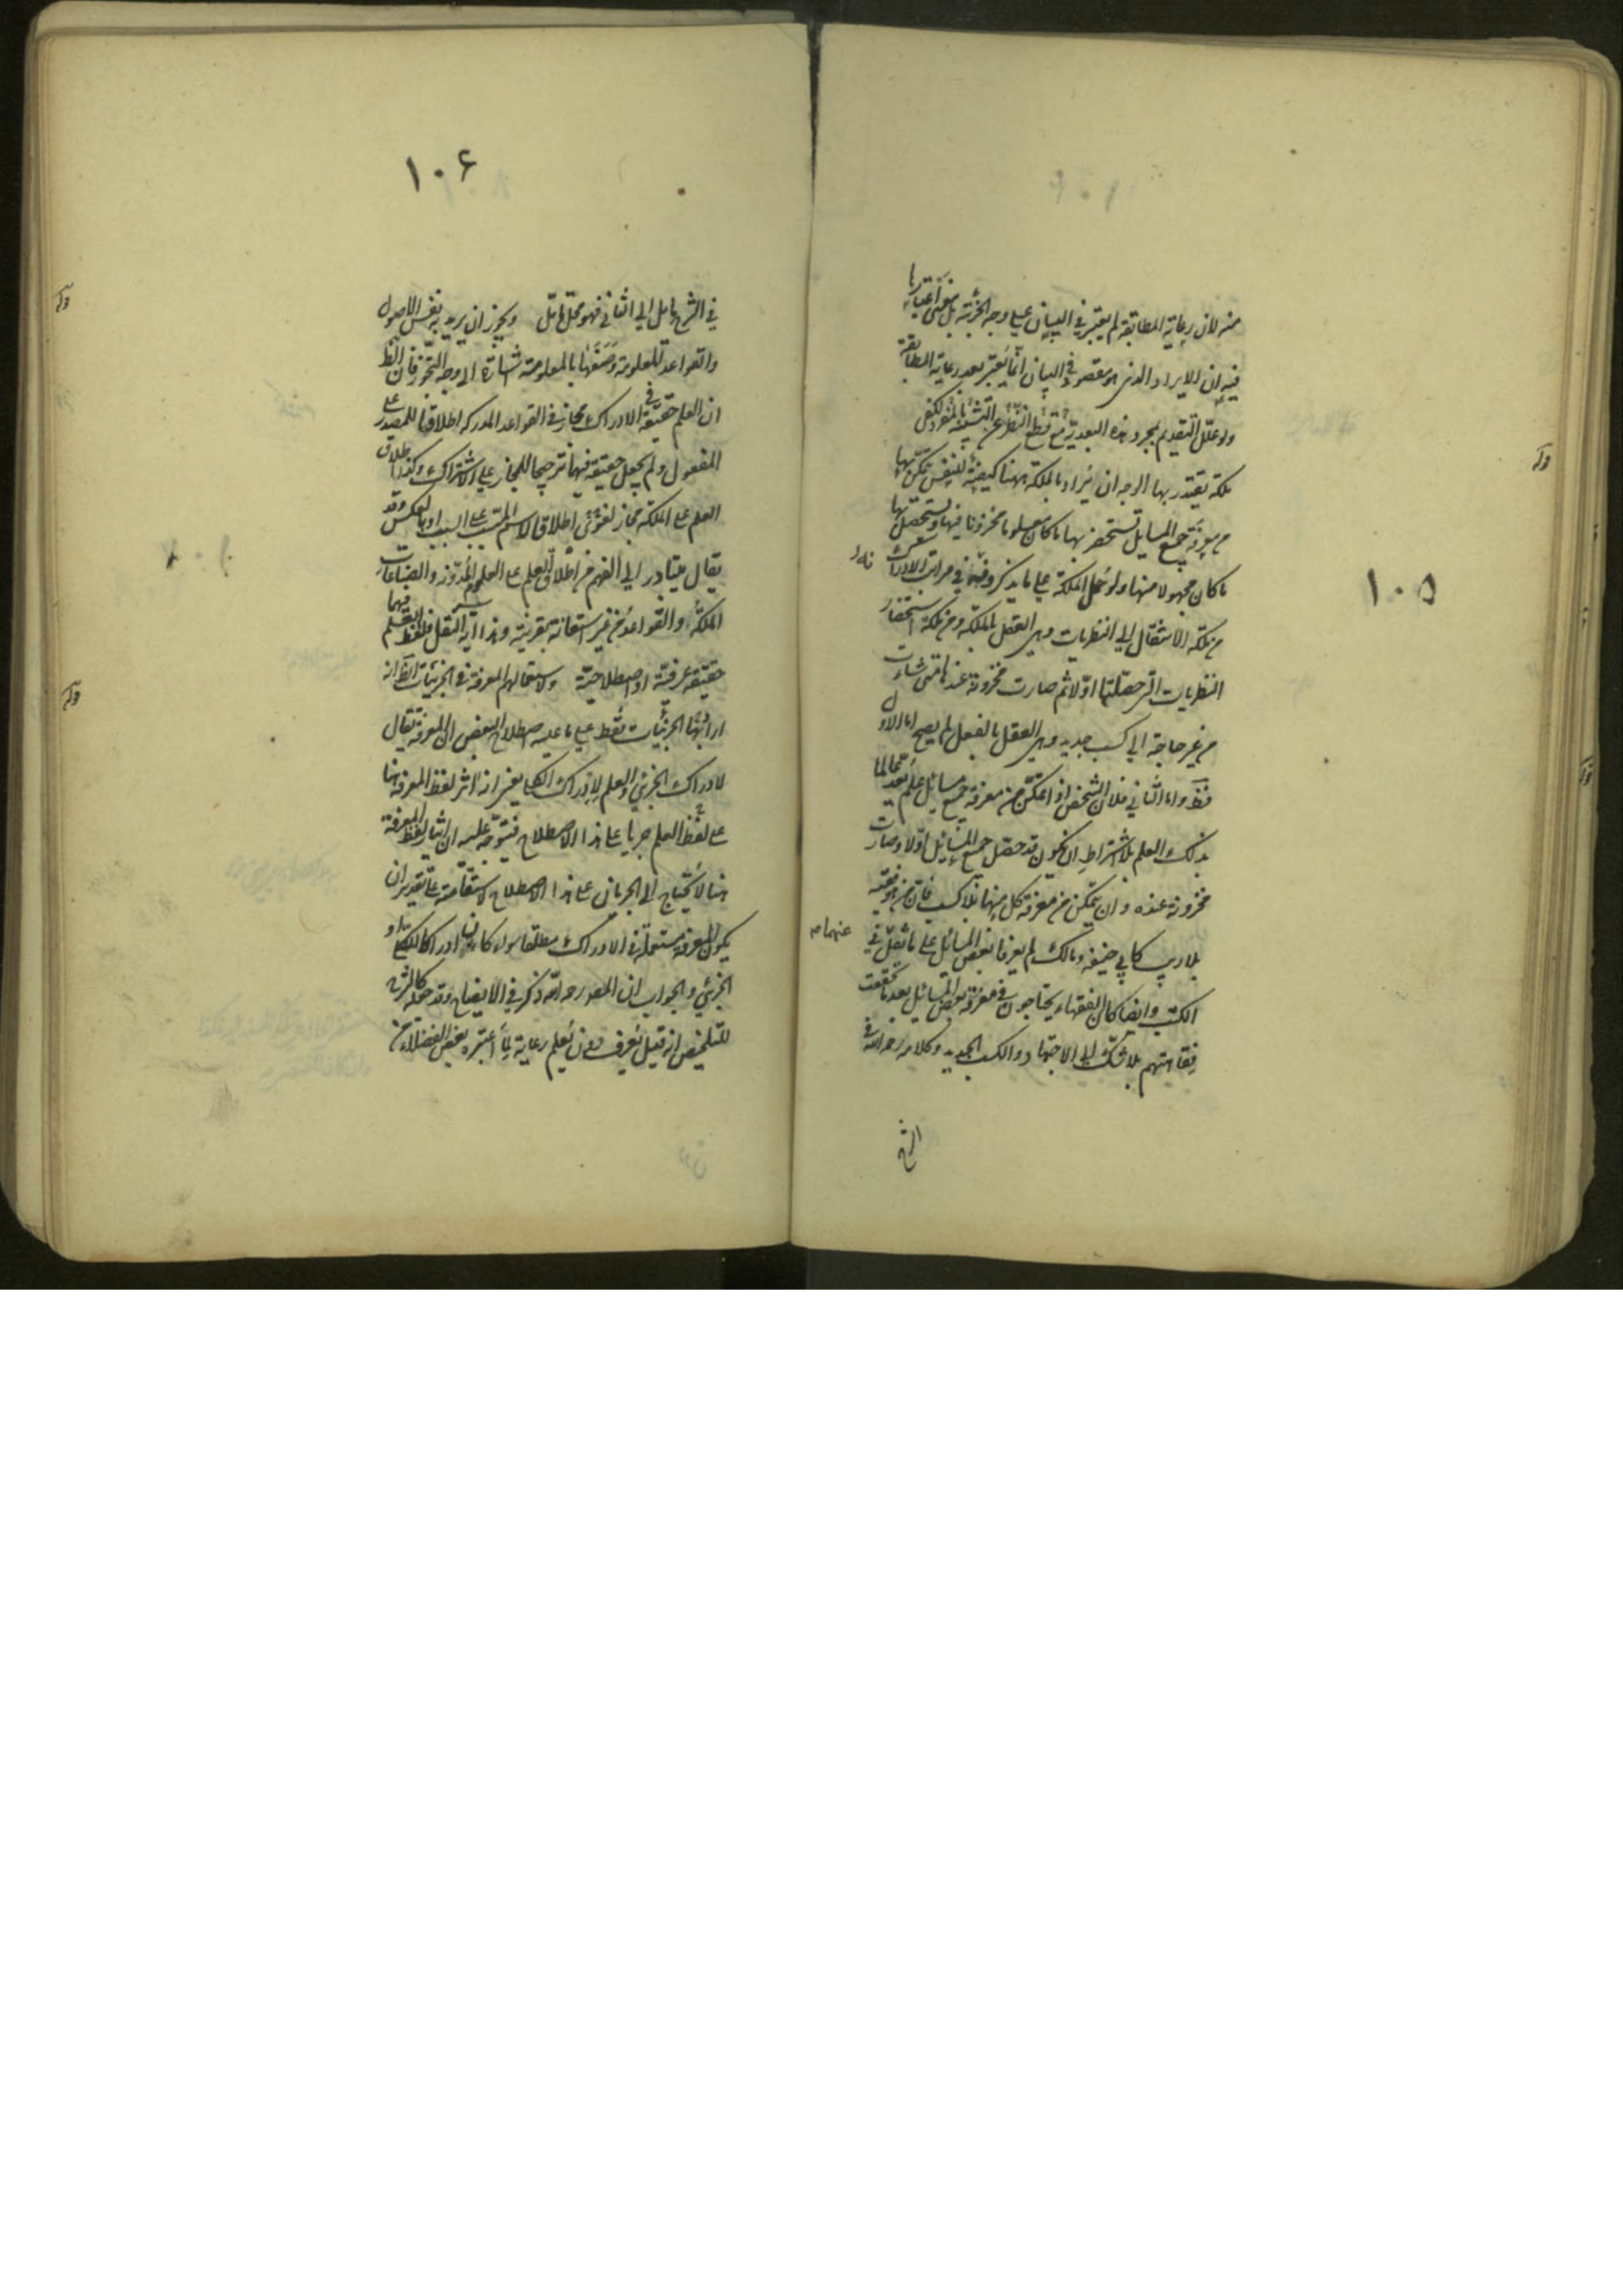 ١٠٥
منه لان رعاية المطابقة لم يعتبر في البيان على وجه الجزئية بل معنى اعتبارها
فيه ان الايراد الذى هو مقصود في البيان انما يعتبر بعد رعاية المطابقة
ولو علل التقديم بمجرد هذه البعدية مع قطع النظر عن التشبيه بالمفرد لكفى
ملكة يقتدر بها الوجه ان يراد بالملكة ههنا كيفية للنفس يتمكن بها
من معرفة جميع المسايل تستحضر بها ما كان معلوما مخزونا فيها وتستحصل بها
ما كان مجهولا منها ولو حمل الملكة على ما يذكرونه في مراتب الادراك
من ملكة الانتقال الى النظريات وهى العقل بالملكة ومن ملكة استحضار
النظريات التى حصلتها اولا ثم صارت مخزونة عندها متى شاءت
من غير حاجة الى كسب جديد وهى العقل بالفعل لم يصح اما الاول
فظ واما الثاني فلان الشخص اذا تمكن من معرفة جميع مسائل علم يعد عالما
بذلك العلم بلا اشتراط ان يكون قد حصل جميع المسائل اولا وصارت
مخزونة عنده وان يتمكن من معرفة كل منها بلا كسب فان من هو فقيه
بلا ريب كابي حنيفة ومالك لم يعرفا بعض المسائل على ما نقل في
عنهما
الكتب وايضا كان الفقهاء يحتاجون في معرفة بعض المسائيل بعد ما تحققت
فقاهتهم بلا شك الى الاجتهاد والكسب الجديد وكلامه رحمه الله في
الشرح
١٠۶
في الشرح مايل الى الثاني فهو محل تامل ويجوز ان يريد به نفس الاصول
والقواعد المعلومة وصفها بالمعلومة اشارة الى وجه التجوز فان الظ
ان العلم حقيقة في الادراك مجاز في القواعد المدركة اطلاقا للمصدر على
المفعول ولم يجعل حقيقة فيها ترجيحا للمجاز على الاشتراك وكذا اطلاق
العلم على الملكة مجاز لغوى اطلاقا لاسم المسبب على السبب او بالعكس وقد
يقال يتبادر الى الفهم من اطلاق العلم على العلوم المدونة والصناعات
الملكة والقواعد من غير استعانة بقرينة وهذا اية النقل فلفظ العلم فيهما
حقيقة عرفية او اصطلاحية ولاستعمالهم المعرفة في الجزئيات الظ انه
اراد بها الجزئيات فقط على ما عليه اصطلاح البعض ان المعرفة تقال
لادراك الجزئي والعلم لادراك الكلي يعنى انه اثر لفظ المعرفة هنا
على لفظ العلم جريا على هذا الاصطلاح فيتوجه عليه ان ايثار لفظ المعرفة
هنا لا يحتاج الى الجريان على هذا الاصطلاح لاستقامته على تقدير ان
يكون المعرفة مستعملة في الادراك مطلقا سواء كان ادراكا للكلي او
الجزئي والجواب ان المصر رحمه الله ذكر في الايضاح وقد جعله كالشرح
للتلخيص انه قيل يعرف دون يعلم رعاية لما اعتبره بعض الفضلاء من